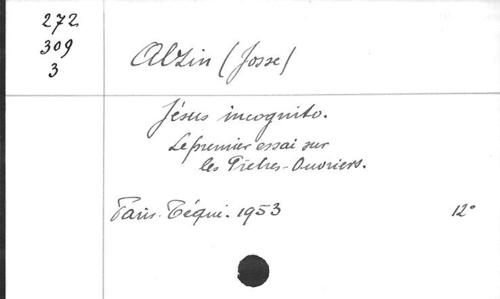 272
309
3
Alzin (Josse)
Jésus incognito.
Le premier essai sur
les Prêtres-Ouvriers.
Paris. Téqui. 1953
12°